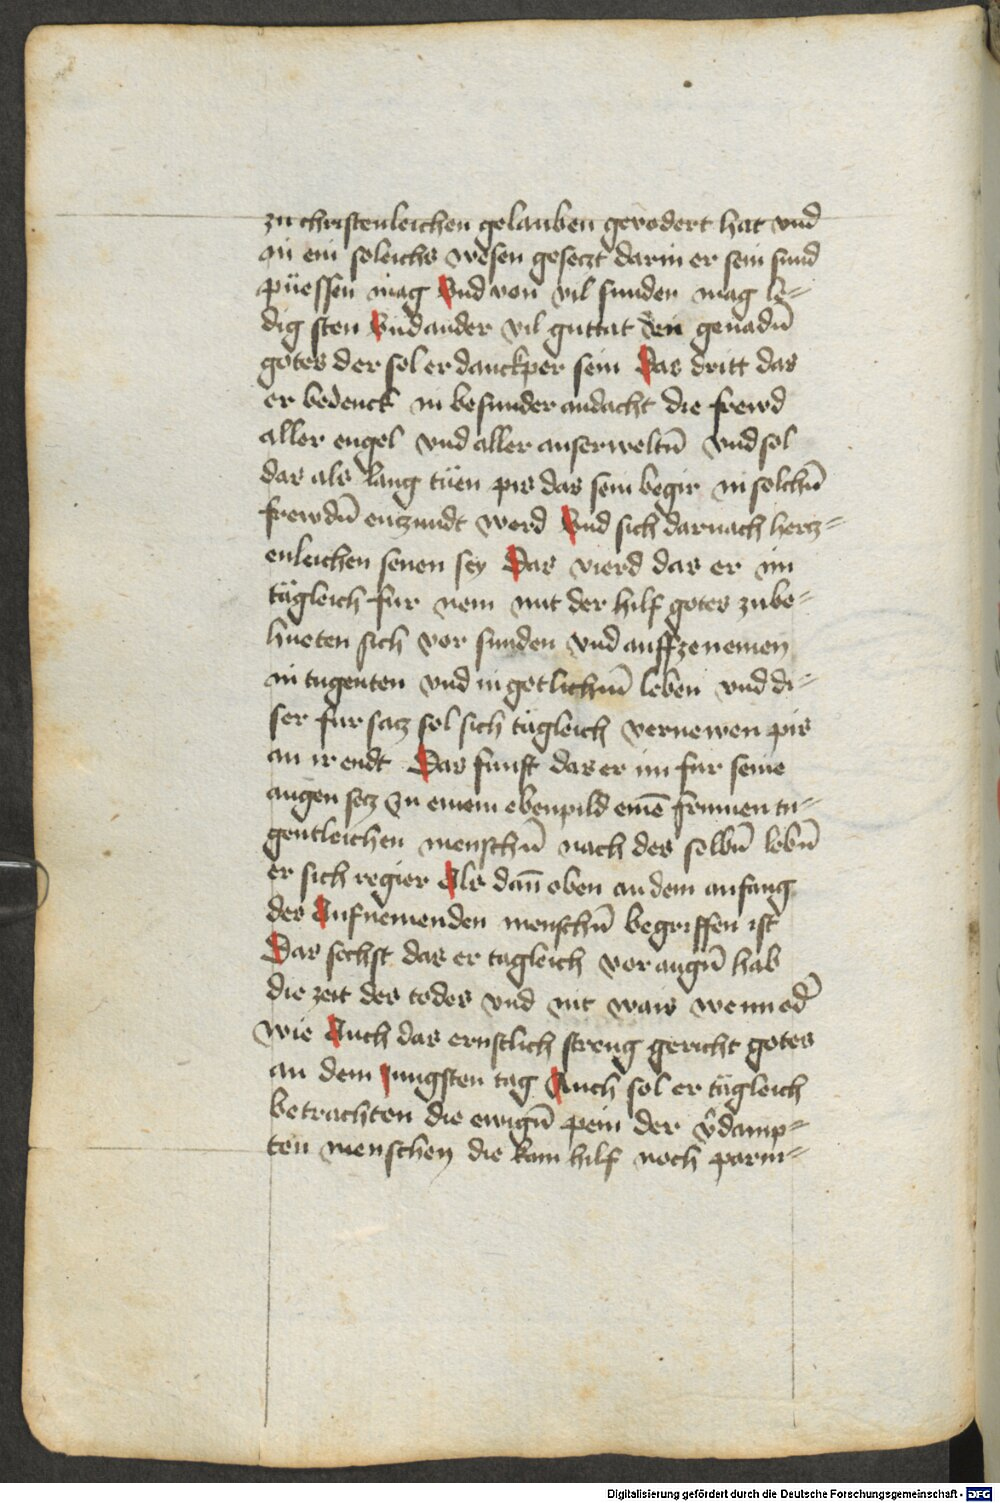 zu christenleichen gelauben gevodert hat vnd
in ein soleichs wesen gesetzt darin er sein sund
püessen mag Vnd von vil sunden mag le⸗
dig sten Vnd ander vil guttat den genadn̄
gotes der sol er danckper sein Das dritt das
er bedenck in besunder andacht die frewd
aller engel vnd aller auserweltn̄ Vnd sol
das als lang tüen pis das sein begir in solchn̄
frewdn̄ enzundt werd Vnd sich darnach hertz⸗
enleichen senen sey Das vierd das er im
tägleich fur nem mit der hilf gotes zu be⸗
hueten sich vor sunden vnd auffzenemen
in tugenten vnd in gotlichm̄ leben vnd di⸗
ser fursatz sol sich tägleich vernewen pis
an ir endt Das funft das er im fur seine
augen setz zu einem ebenpild eine͂ frumen tu⸗
gentleichen menschn̄ nach des selbn̄ lebn̄
er sich regier Als dan̄ oben an dem anfang
des Aufnemenden menschn̄ begriffen ist
Das sechst das er tagleich vor augn̄ hab
die zeit des todes vnd nit wais wenn od̄
wie Auch das ernstlich streng gericht gotes
an dem jungsten tag Auch sol er tägleich
betrachten die ewign̄ pein der v̄damp⸗
ten menschen die kain hilf noch parm⸗
Digitalisierung gefördert durch die Deutsche Forschungsgemeinschaft - DFG